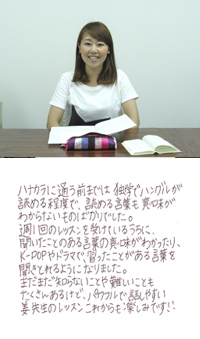 ハナカラに通う前までは 独学でハングルが
読める程度で、読める言葉も意味が
わからないものばかりでした。
週1回のレッスンを受けているうちに、
聞いたことのある言葉の意味がわかったり、
K-POPやドラマで、習ったことがある言葉を
聞きとれるようになりました。
まだまだ知らないことや難しいことも
たくさんあるけど、パワフルで話しやすい
姜先生のレッスンこれからも楽しみです!!